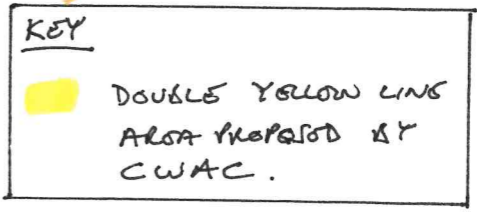 KEY
DOUBLE YELLOW LINE
AREA PROPOSED BY
CWAC.